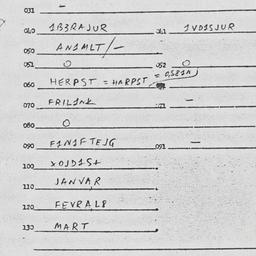 031 -
040 1B3RAJUR 041 1VD1SJUR
050 AN1MLT/-
051 O 052 O
060 HERPST = HARPST = 0,581N
070 FRIL1NK 071 -
080 O
090 F1N1FTEJG 091 -
100 XOJD1S+
110 JANVAR
120 FEVRAL8
130 MART